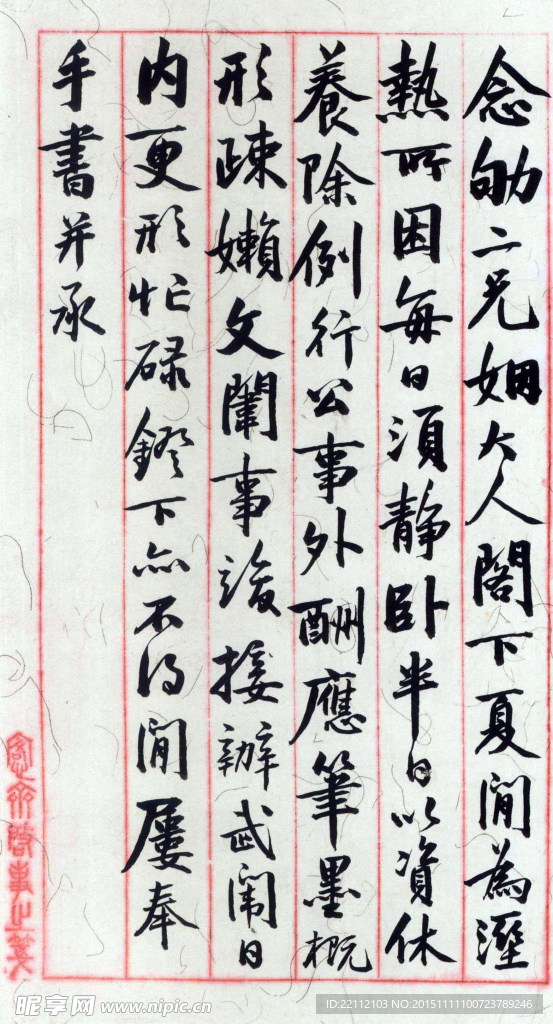 念劬二兄姻大人閣下夏間為溼
熱所困每日須靜臥半日以資休
養除例行公事外酬應筆墨概
形疎嬾文闈事竣接辦武闈日
內更形忙碌鐙下亦不得閒屢奉
手書并承
昵享网 www.nipic.cn
ID:22112103 NO:20151111100723789246